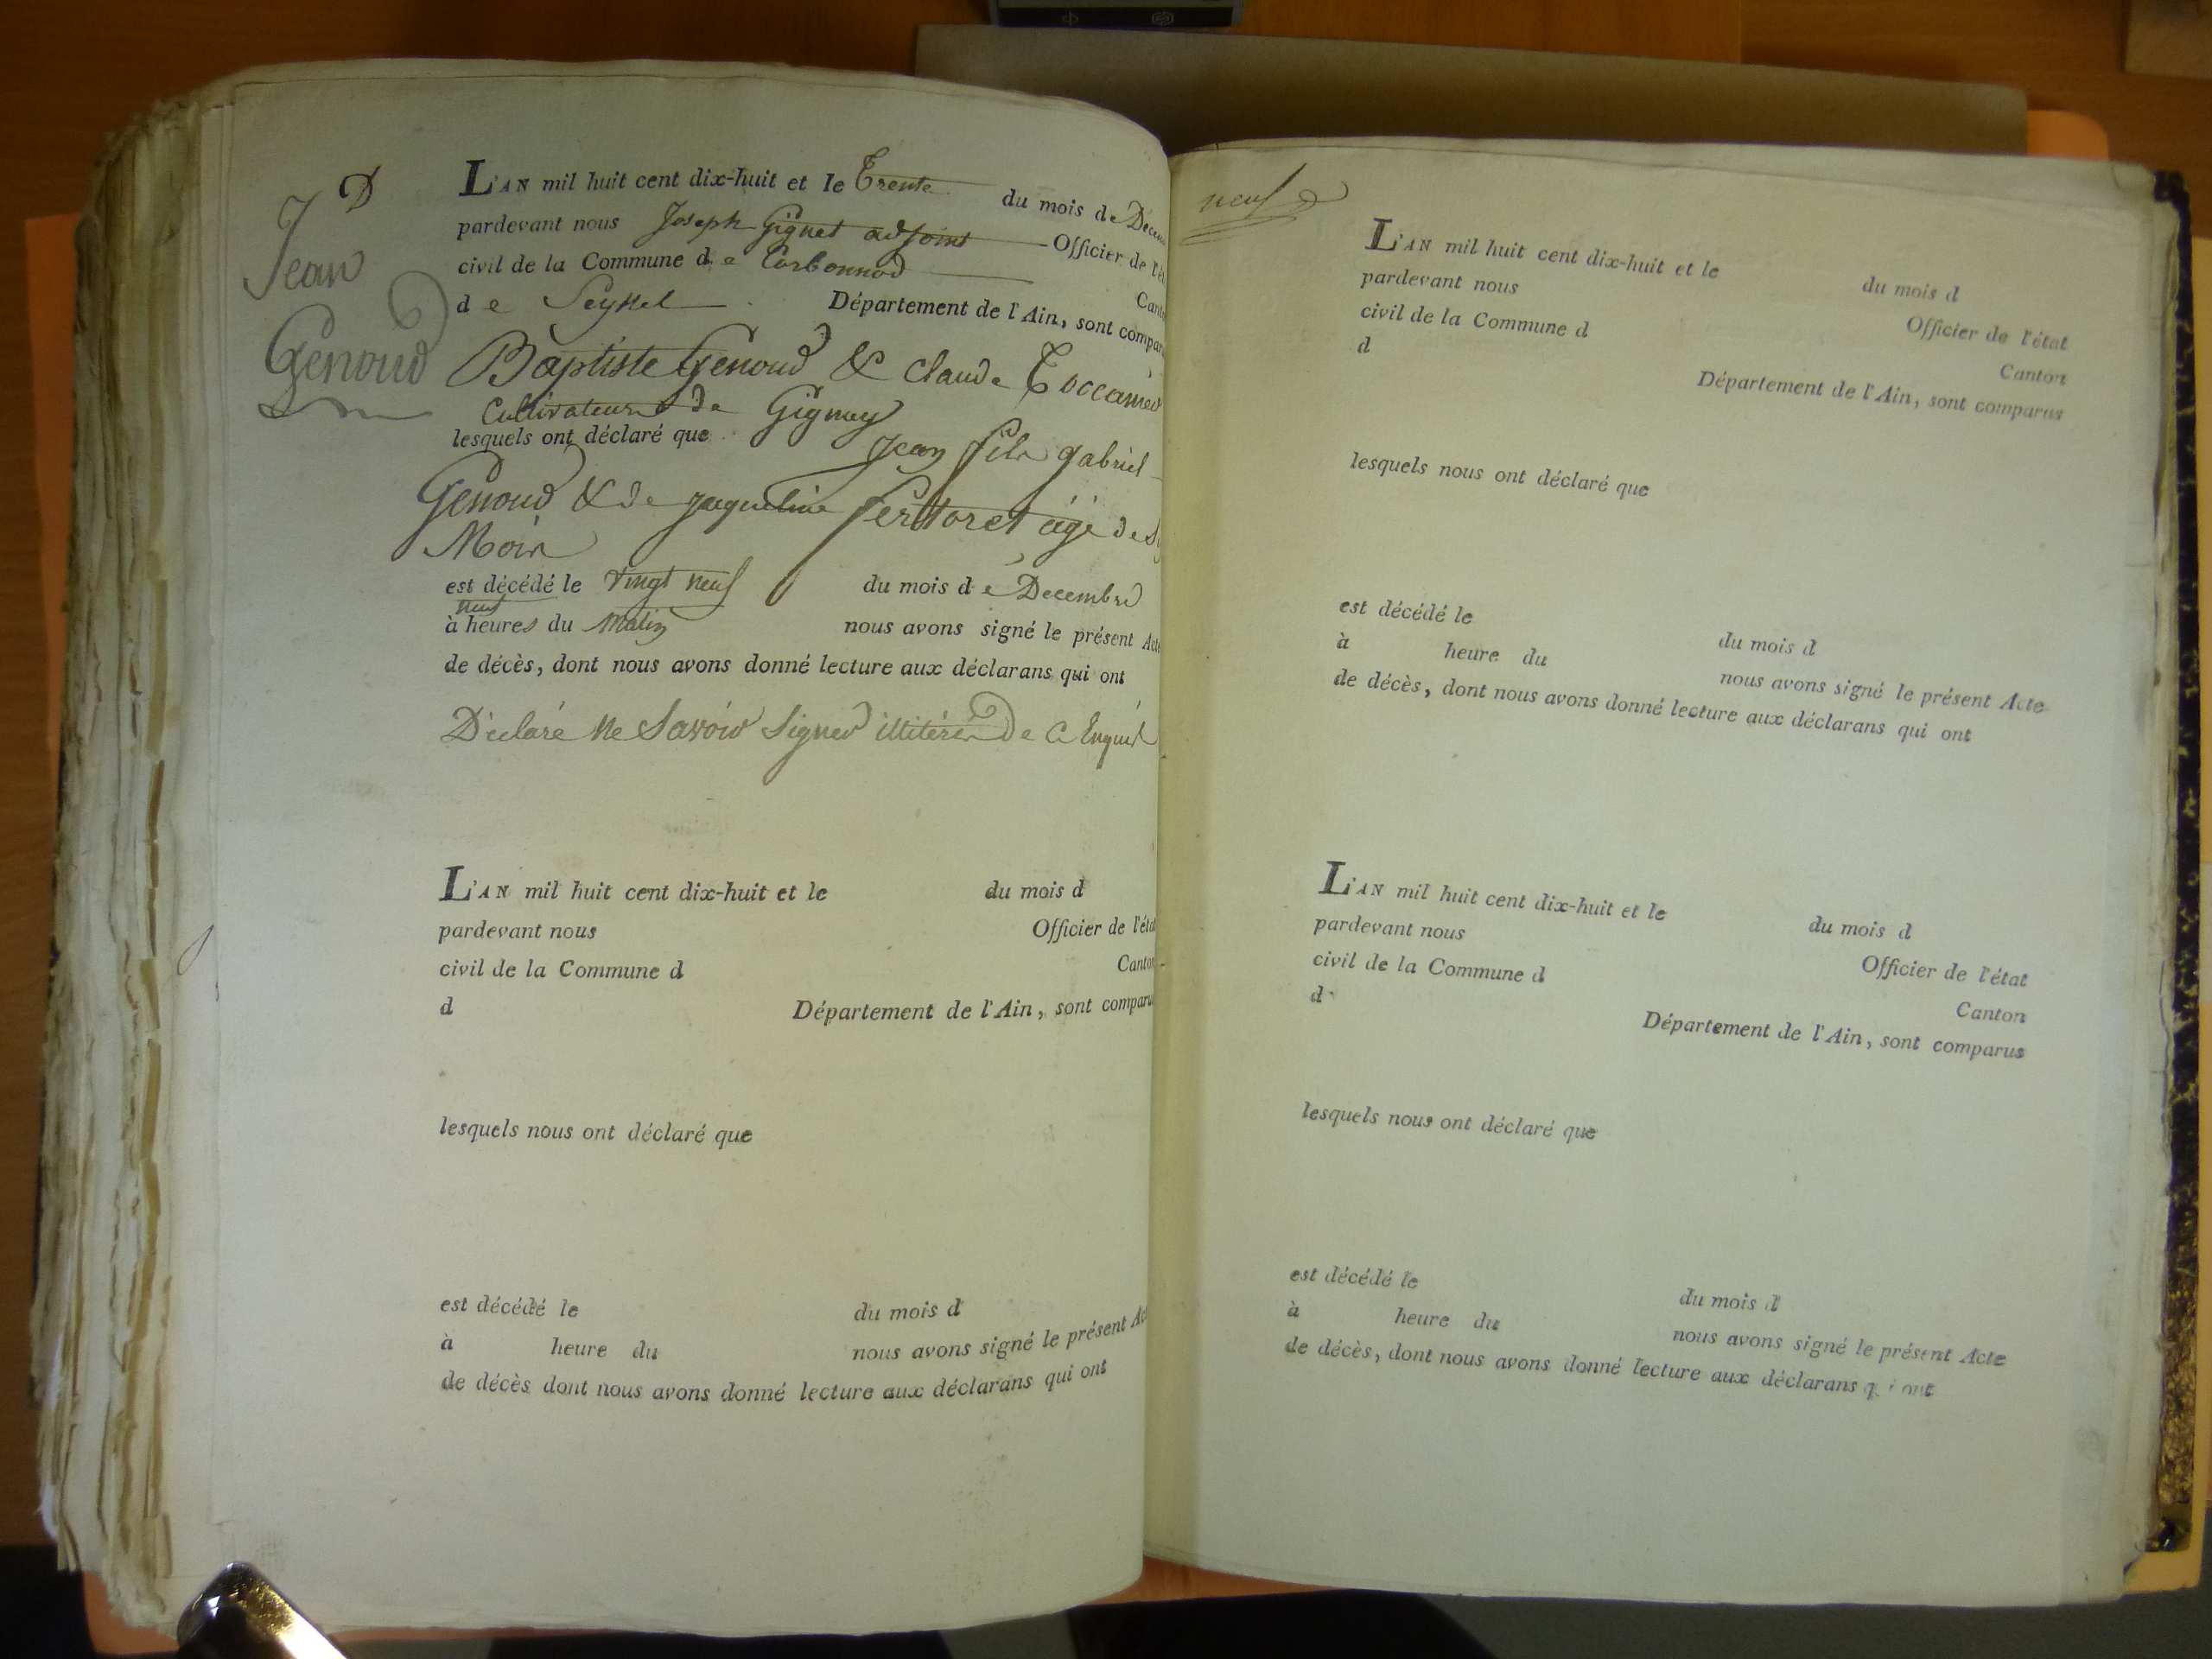 D
Jean
Genoud
L'AN mil huit cent dix-huit et le Trente du mois de Décem
pardevant nous Joseph Gignet adjoint Officier de l'ét
civil de la Commune de Corbonnod Cant
de Seyssel Département de l'Ain, sont compar
Baptiste Genoud & Claude
Cultivateurs de Gignez
lesquels ont déclaré que Jean fils gabriel
Genoud & de jaqueline fertoret âgé de
Mois
est décédé le vingt neuf du mois de Decembre
neuf
à heures du Matin nous avons signé le présent Acte
de décès, dont nous avons donné lecture aux déclarans qui ont
Déclaré Ne Savoir Signer illitérés De ce Enquis
L'AN mil huit cent dix-huit et le du mois d
pardevant nous Officier de l'éta
civil de la Commune d Canton
d Département de l'Ain, sont comparu
lesquels nous ont déclaré que
est décédé le du mois d
à heure du nous avons signé le présent Ac
de décès dont nous avons donné lecture aux déclarans qui ont
neuf
L'AN mil huit cent dix-huit et le du mois d
pardevant nous Officier de l'état
civil de la Commune d Canton
d Département de l'Ain, sont comparus
lesquels nous ont déclaré que
est décédé le du mois d
à heure du nous avons signé le présent Acte
de décès, dont nous avons donné lecture aux déclarans qui ont
L'AN mil huit cent dix-huit et le du mois d
pardevant nous Officier de l'état
civil de la Commune d Canton
d Département de l'Ain, sont comparus
lesquels nous ont déclaré que
est décédé le du mois d
à heure du nous avons signé le présent Acte
de décès, dont nous avons donné lecture aux déclarans q i ont